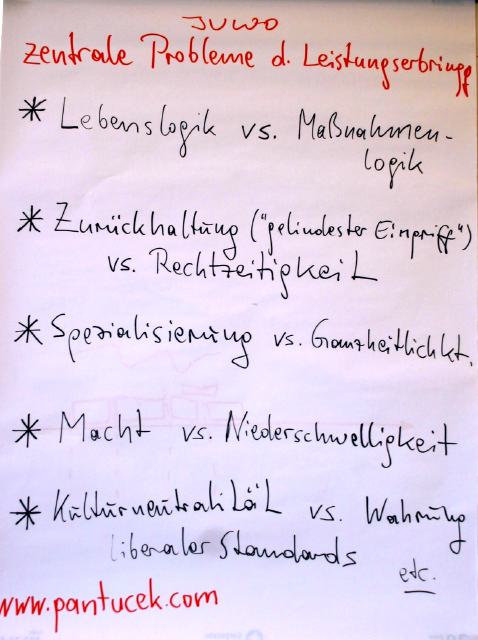 JUWO
Zentrale Probleme d. Leistungserbringg
* Lebenslogik vs. Maßnahmen-
logik
* Zurückhaltung ("gelindester Eingriff")
vs. Rechtzeitigkeit
* Spezialisierung vs. Ganzheitlichkt.
* Macht vs. Niederschwelligkeit
* Kulturneutralität vs. Wahrung
liberaler Standards
etc.
www.pantucek.com